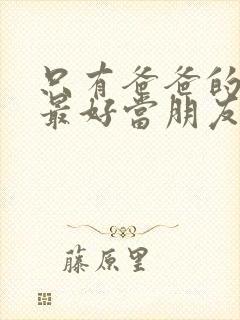 只有爸爸的
最好當朋友
藤原里